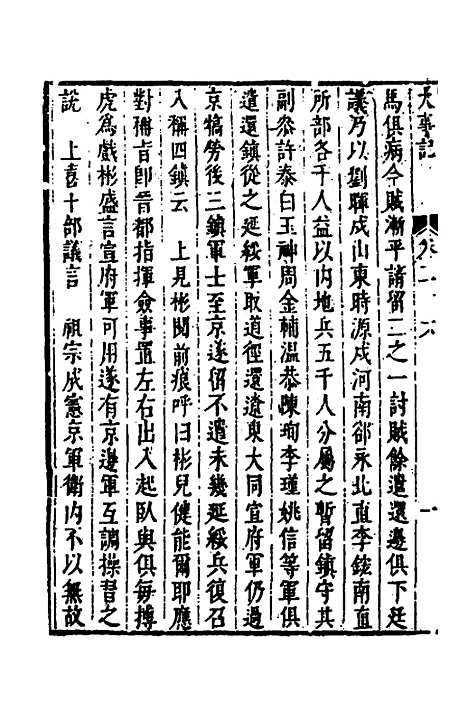 大事記 卷二十六 一
馬俱病今賊漸平請留二之一討賊餘遣還邊俱下廷
議乃以劉暉戍山東時源戍河南郤永北直李鋐南直
所部各千人益以内地兵五千人分屬之暫留鎮守其
副叅許泰白玉神周金輔溫恭陳珣李瑾姚信等軍俱
遣還鎮從之延綏軍取道徑還遼東大同宣府軍仍過
京犒勞後三鎮軍士至京遂留不遣未幾延綏兵復召
入稱四鎮云 上見彬閱前痕呼曰彬兒健能爾耶應
對稱旨卽晋都指揮僉事置左右出入起臥與俱每搏
虎爲戲彬盛言宣府軍可用遂有京邊軍互調操習之
說 上喜十部議言 祖宗成憲京軍衛内不以無故